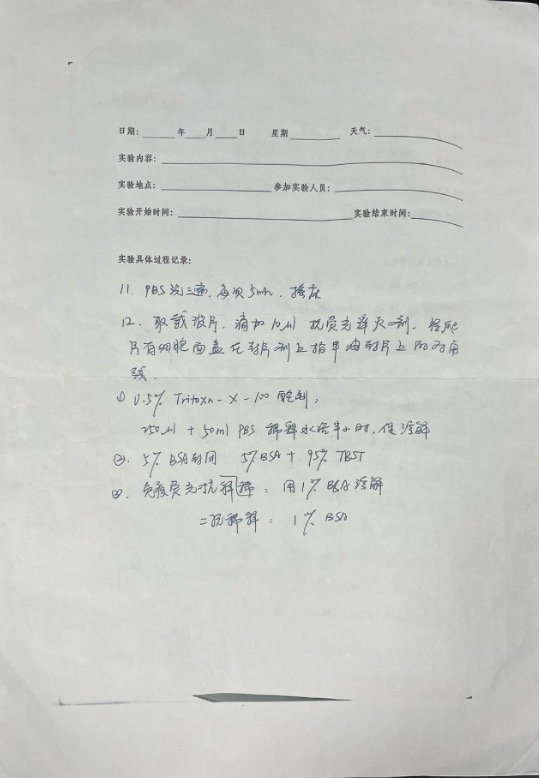 日期：____年___月___日 星期______ 天气：______
实验内容：
实验地点： 参加实验人员：
实验开始时间： 实验结束时间：
实验具体过程记录：
11. PBS洗三遍，每次5min，摇床
12. 取载玻片，滴加10μl 抗荧光淬灭剂，将爬
片有细胞面盖在封片剂上指甲油封片上
① 0.5% Tritoxn-X-100 配制：
250μl + 50ml PBS 稀释水浴半小时，促溶解
②. 5% BSA封闭 5%BSA + 95% TBST
③. 免疫荧光一抗稀释：用1% BSA溶解
二抗稀释：1% BSA